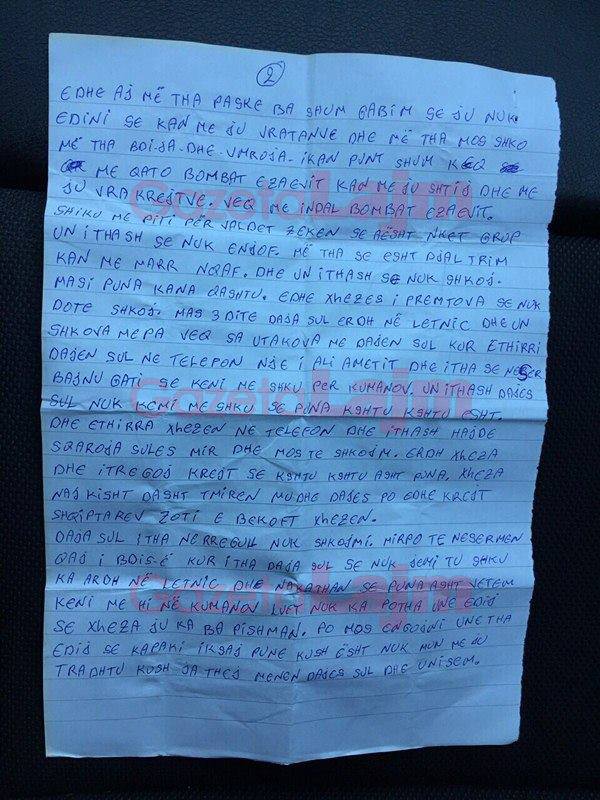 2
EDHE AJ MË THA PASKE BA SHUM GABIM SE JU NUK
EDINI SE KAN ME JU VRATANVE DHE MË THA MOS SHKO
MË THA BDI-JA-DHE-VMROJA-IKAN PUNT SHUM KEQ
ME QATO BOMBAT EZAEVIT KAN ME JU SHTIJ DHE ME
JU VRA KREJTVE. VEQ ME INDAL BOMBAT EZAEVIT.
SHIKU ME PITI PËR VALDET ZEKEN SE AËSHT NKET GRUP
UN ITHASH SE NUK ENJOF. MË THA SE ESHT DJAL TRIM
KAN ME MARR NQAF. DHE UN ITHASH SE NUK SHKOJ.
MASI PUNA KANA QASHTU. EDHE XHEZES I PREMTOVA SE NUK
DOTE SHKOJ. MAS 3 DITE DAJA SUL ERDH NË LETNIC DHE UN
SHKOVA MEPA VEQ SA UTAKOVA ME DAJEN SUL KUR ETHIRRI
DAJEN SUL NE TELEFON NJE I ALI AMETIT DHE ITHA SE NESER
BAJNU GATI SE KENI ME SHKU PER KUMANOV. UN ITHASH DAJES
SUL NUK KEMI ME SHKU SE PUNA KSHTU KSHTU ESHT.
DHE ETHIRRA XHEZEN NE TELEFON DHE ITHASH HAJDE
SQAROJA SULES MIR DHE MOS TE SHKOJM. ERDH XHEZA
DHE ITREGOJ KREJT SE KSHTU KSHTU ASHT PUNA. XHEZA
NAJ KISHT DASHT TMIREN MU DHE DAJES PO EDHE KREJT
SHQIPTAREV ZOTI E BEKOFT XHEZEN.
DAJA SUL ITHA NERREGULL NUK SHKOJMI. MIRPO TE NESERMEN
QAJ I BDIS-Ë KUR ITHA DAJA SUL SE NUK JEMI TU SHKU
KA ARDH NË LETNIC DHE NAKATHAN SE PUNA ASHT VETEM
KENI ME HI NË KUMANOV LUFT NUK KA POTHA UNE EDIJ
SE XHEZA JU KA BA PISHMAN. PO MOS ENGOJNI UNE THA
EDIJ SE KAPAKI IKSAJ PUNE KUSH ËSHT NUK MUN ME JU
TRADHTU KUSH JA THEJ MENEN DAJES SUL DHE UNISEM.
GazetaLajm
GazetaLajm
GazetaLajm